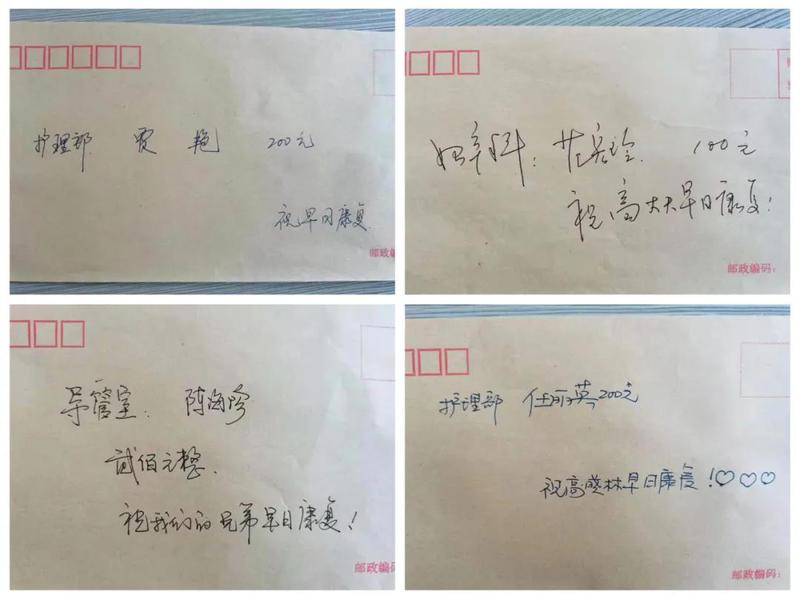 护理部 贾艳 200元
祝早日康复
邮政编
妇产科: 100元
祝高大夫早日康复!
邮政编码:
导管室: 陈海珍
贰佰元整.
祝我们的兄弟早日康复!
邮政编码:
护理部 任丽英 200元
祝高盛林早日康复!♡♡♡
邮政编码: